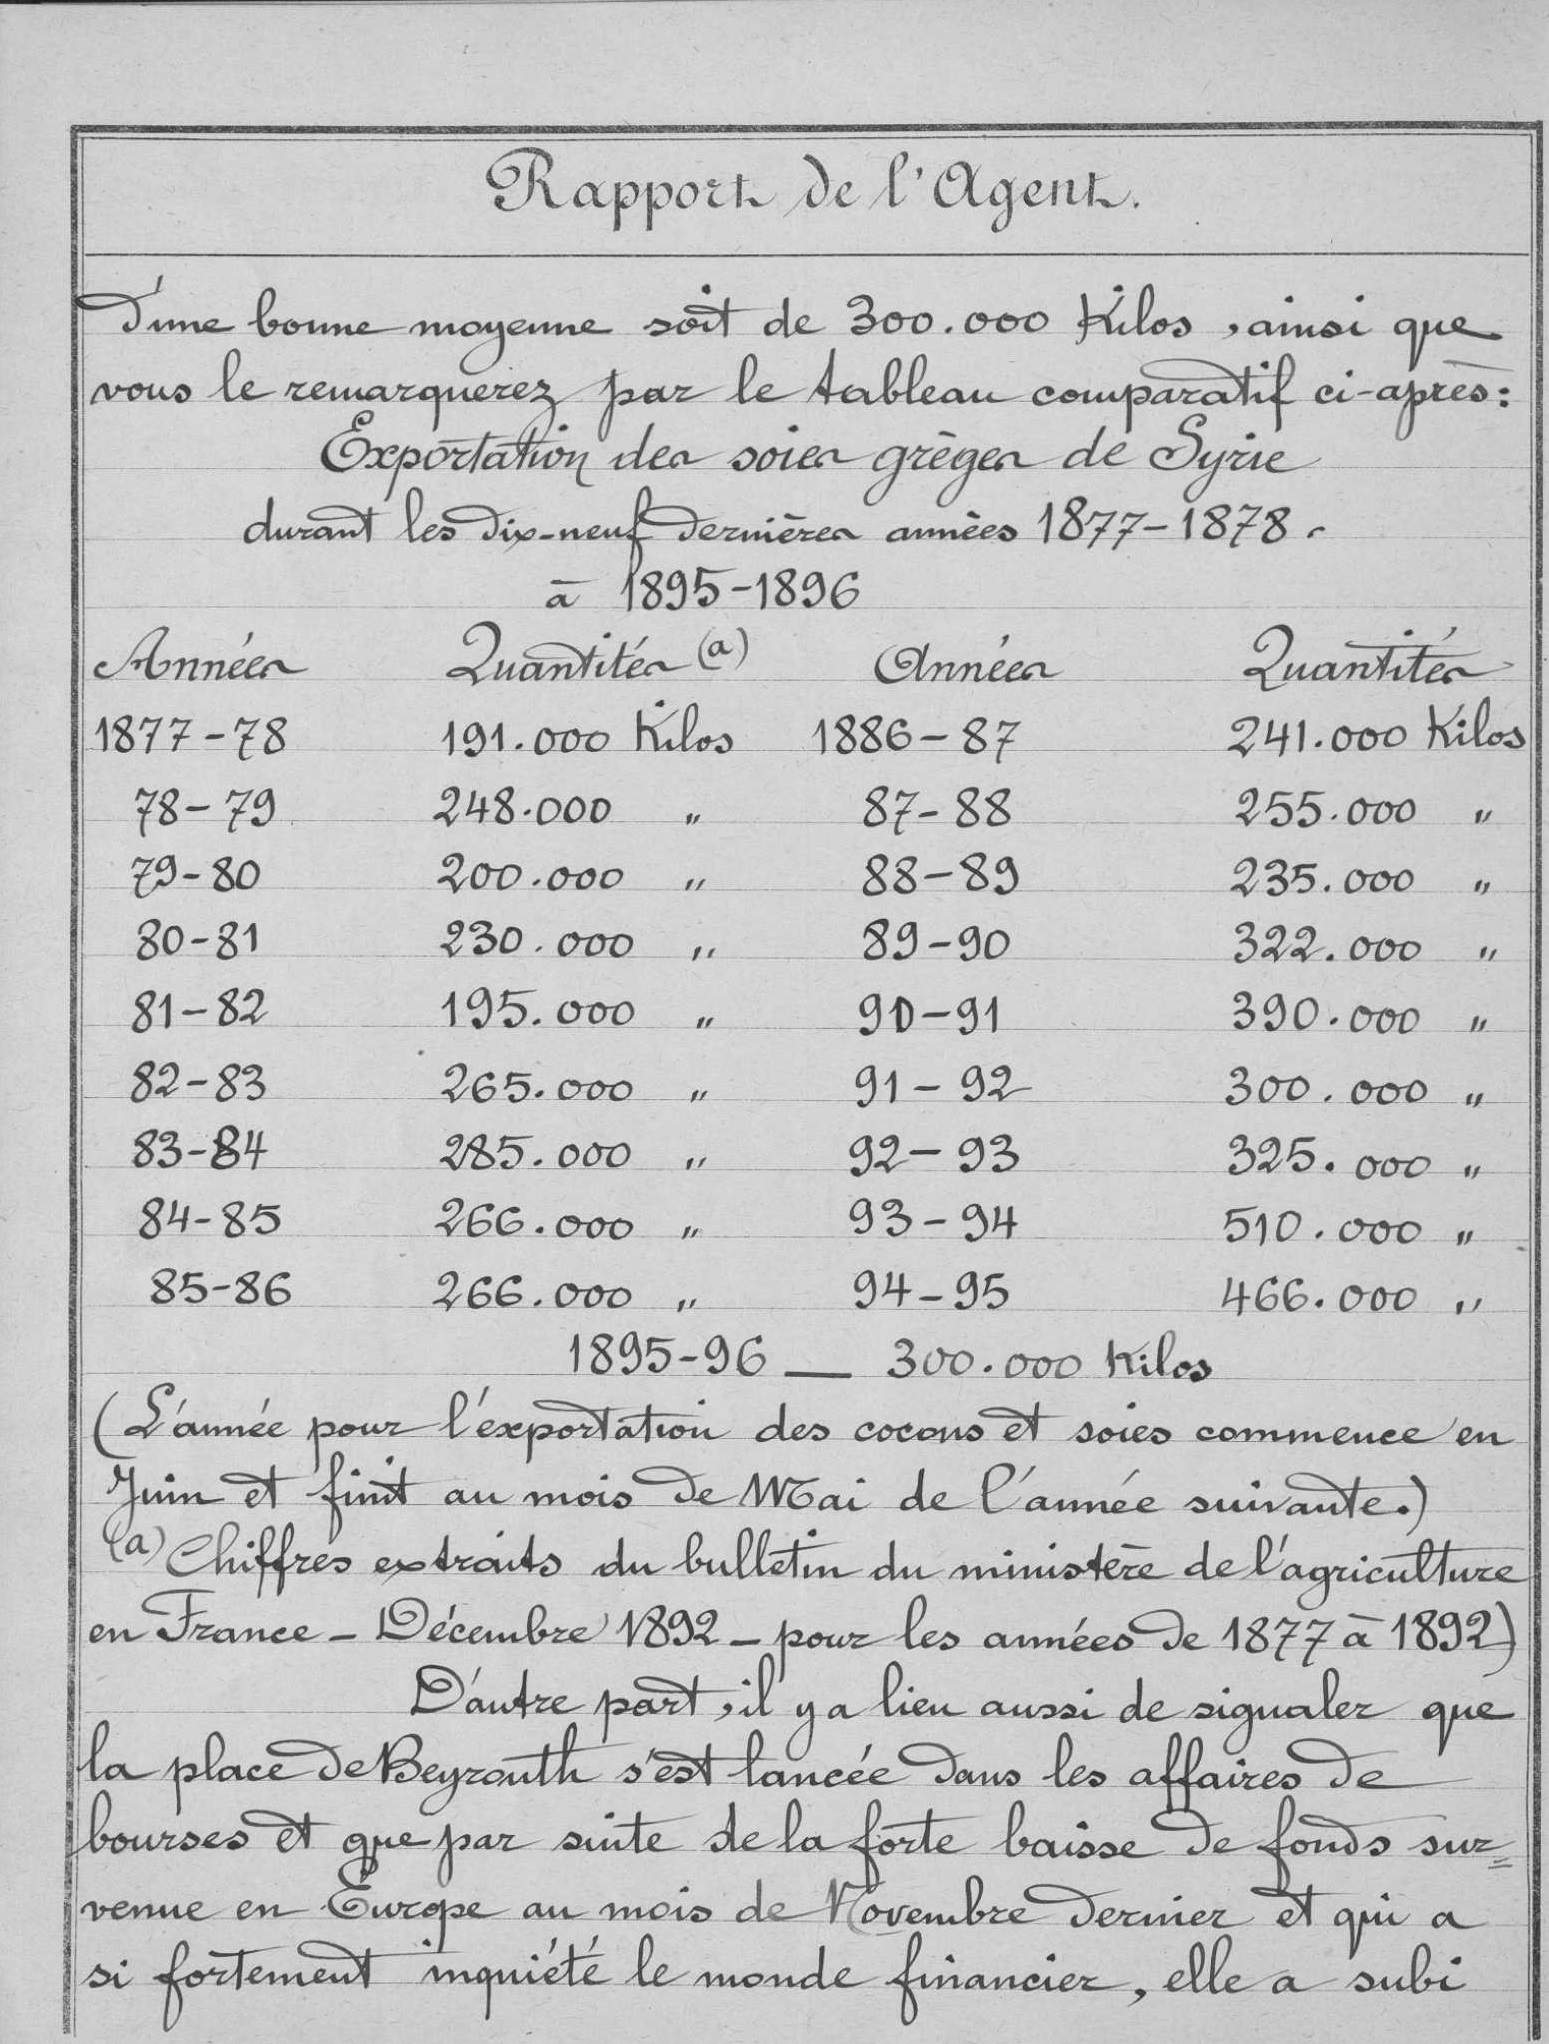 Rapport de l'Agent.
d'une bonne moyenne soit de 300.000 Kilos, ainsi que
vous le remarquerez par le tableau comparatif ci-après:
Exportation des soies grèges de Syrie
durant les dix-neuf dernières années 1877-1878
à 1895-1896
Années Quantités (a) Années Quantités
1877-78 191.000 Kilos 1886-87 241.000 Kilos
78-79 248.000 " 87-88 255.000 "
79-80 200.000 " 88-89 235.000 "
80-81 230.000 " 89-90 322.000 "
81-82 195.000 " 90-91 390.000 "
82-83 265.000 " 91-92 300.000 "
83-84 285.000 " 92-93 325.000 "
84-85 266.000 " 93-94 510.000 "
85-86 266.000 " 94-95 466.000 "
1895-96 — 300.000 Kilos
(L'année pour l'exportation des cocons et soies commence en
Juin et finit au mois de Mai de l'année suivante.)
(a) Chiffres extraits du bulletin du ministère de l'agriculture
en France - Décembre 1892 - pour les années de 1877 à 1892)
D'autre part, il y a lieu aussi de signaler que
la place de Beyrouth s'est lancée dans les affaires de
bourses et que par suite de la forte baisse de fonds sur=
venue en Europe au mois de Novembre dernier et qui a
si fortement inquiété le monde financier, elle a subi